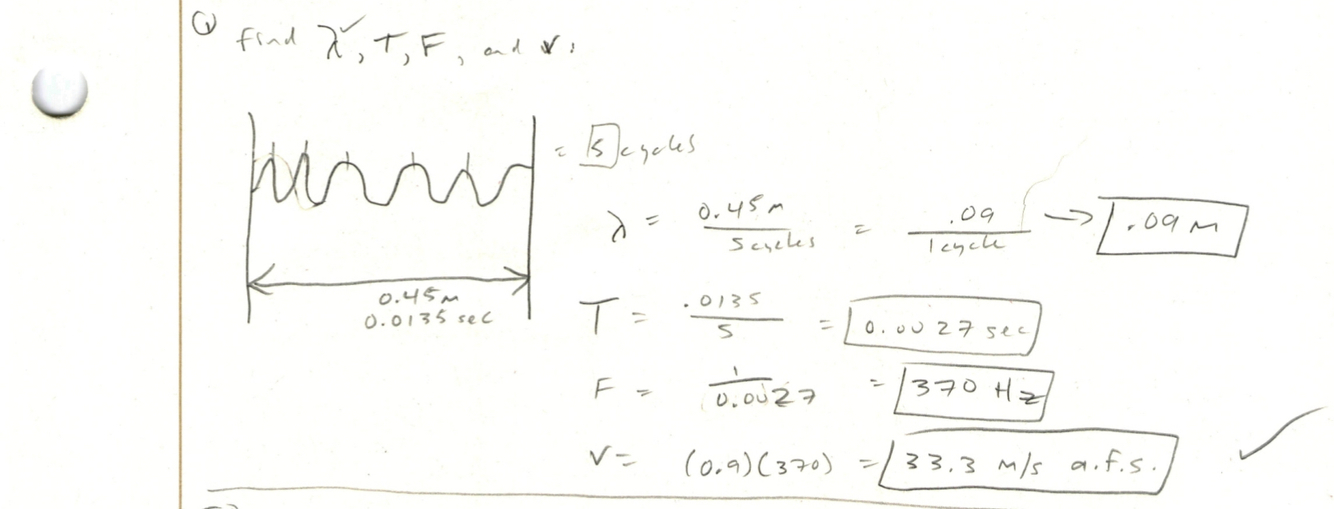 ① Find λ, T, F, and v.
= 5 cycles
λ = 0.45m / 5 cycles = .09 / 1 cycle → .09 m
0.45m
0.0135 sec
T = .0135 / 5 = 0.0027 sec
F = 1 / 0.0027 = 370 Hz
v = (0.9)(370) = 33.3 m/s a.f.s.